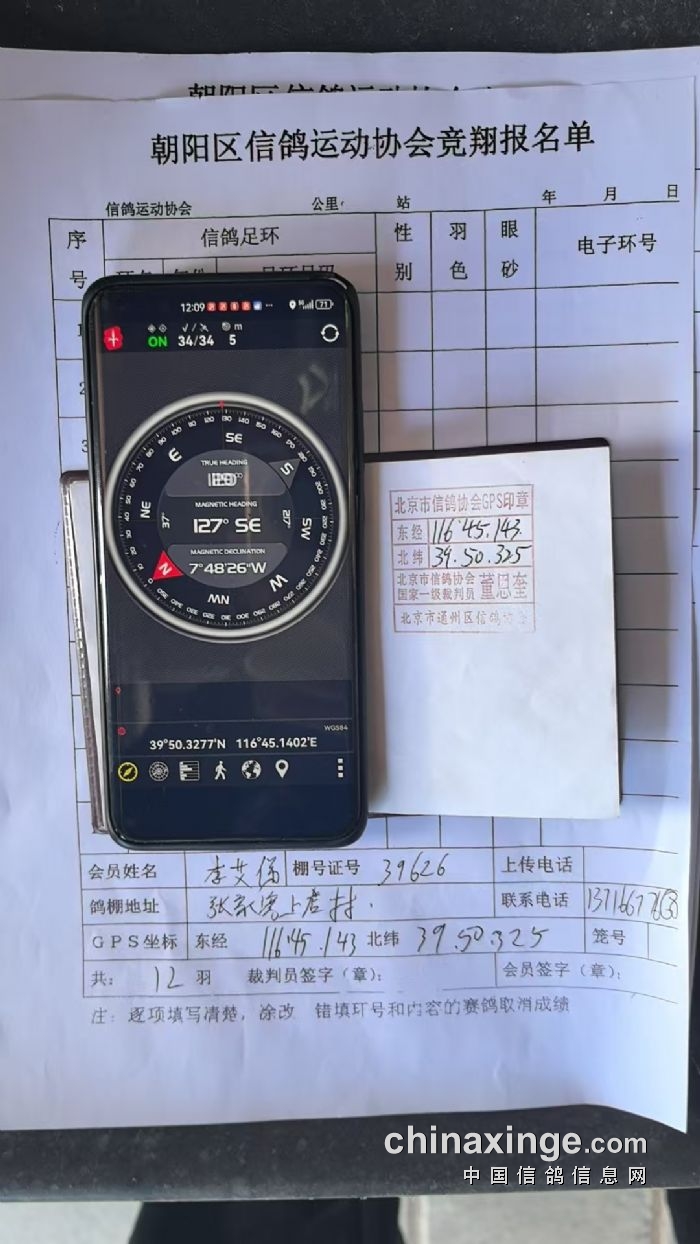 朝阳区信鸽运动协会竞翔报名单
信鸽运动协会 公里 站 年 月 日
序号 信鸽足环 性别 羽色 眼砂 电子环号
12:09 71
ON 34/34 5 m
TRUE HEADING
MAGNETIC HEADING
127° SE
MAGNETIC DECLINATION
7°48'26"W
N NE E SE S SW W NW
37° 217°
WGS84
39°50.3277'N 116°45.1402'E
北京市信鸽协会GPS印章
东经 116°45.143.
北纬 39.50.325
北京市信鸽协会
国家一级裁判员 董恩奎
北京市通州区信鸽协会
会员姓名 棚号证号 39626 上传电话
鸽棚地址 联系电话
GPS坐标 东经 116°45.143 北纬 39.50.325 笼号
共: 12 羽 裁判员签字(章): 会员签字(章):
注: 逐项填写清楚, 涂改 错填环号和内容的赛鸽取消成绩
chinaxinge.com
中国信鸽信息网